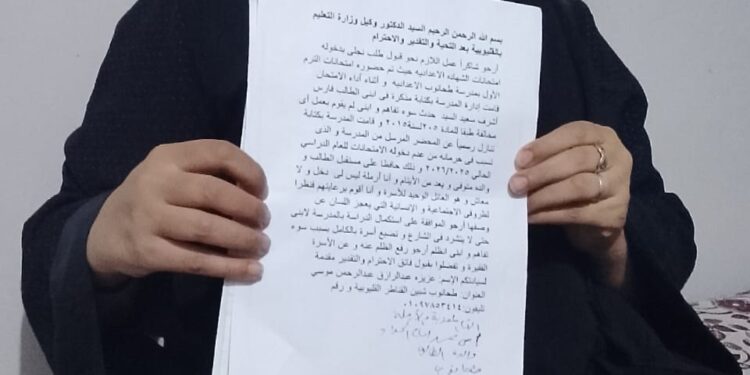 بسم الله الرحمن الرحيم السيد الدكتور وكيل وزارة التعليم
بالقليوبية بعد التحية والتقدير والاحترام
أرجو شاكراً عمل اللازم نحو قبول طلب نجلى بدخوله
امتحانات الشهاده الاعداديه حيث تم حضوره امتحانات الترم
الأول بمدرسة طحانوب الاعدادية و أثناء أداء الامتحان
قامت إدارة المدرسة بكتابة مذكرة في ابنى الطالب فارس
أشرف سعيد السيد حدث سوء تفاهم و ابنى لم يقوم بعمل أى
مخالفة طبقا للمادة ٢٠٥ لسنة ٢٠١٥ و قامت المدرسة بكتابة
تنازل رسمياً عن المحضر المرسل من المدرسة و الذى
تسبب فى حرمانه من عدم دخوله الامتحانات للعام الدراسي
الحالي ٢٠٢٦/٢٠٢٥ و ذلك حافظا على مستقبل الطالب و
والده متوفى و يعد من الأيتام و أنا أرملة ليس لى دخل و لا
معاش و هو العائل الوحيد للأسرة و أنا أقوم برعايتهم فنظرا
لظروفى الاجتماعية و الإنسانية التي يعجز اللسان عن
وصفها أرجو الموافقة على استكمال الدراسة بالمدرسة لابنى
حتى لا يتشرد فى الشارع و تضيع أسرة بالكامل بسبب سوء
تفاهم و ابنى انظلم أرجو رفع الظلم عنه و عن الأسرة
الفقيرة و تفضلوا بقبول فائق الاحترام والتقدير مقدمة
لسيادتكم الإسم: عزيزه عبدالرازق عبدالرحمن موسي
العنوان: طحانوب شبين القناطر القليوبية و رقم
تليفون: ٠١٠٩٧٨٥٣٤١٤
والدة الطالب